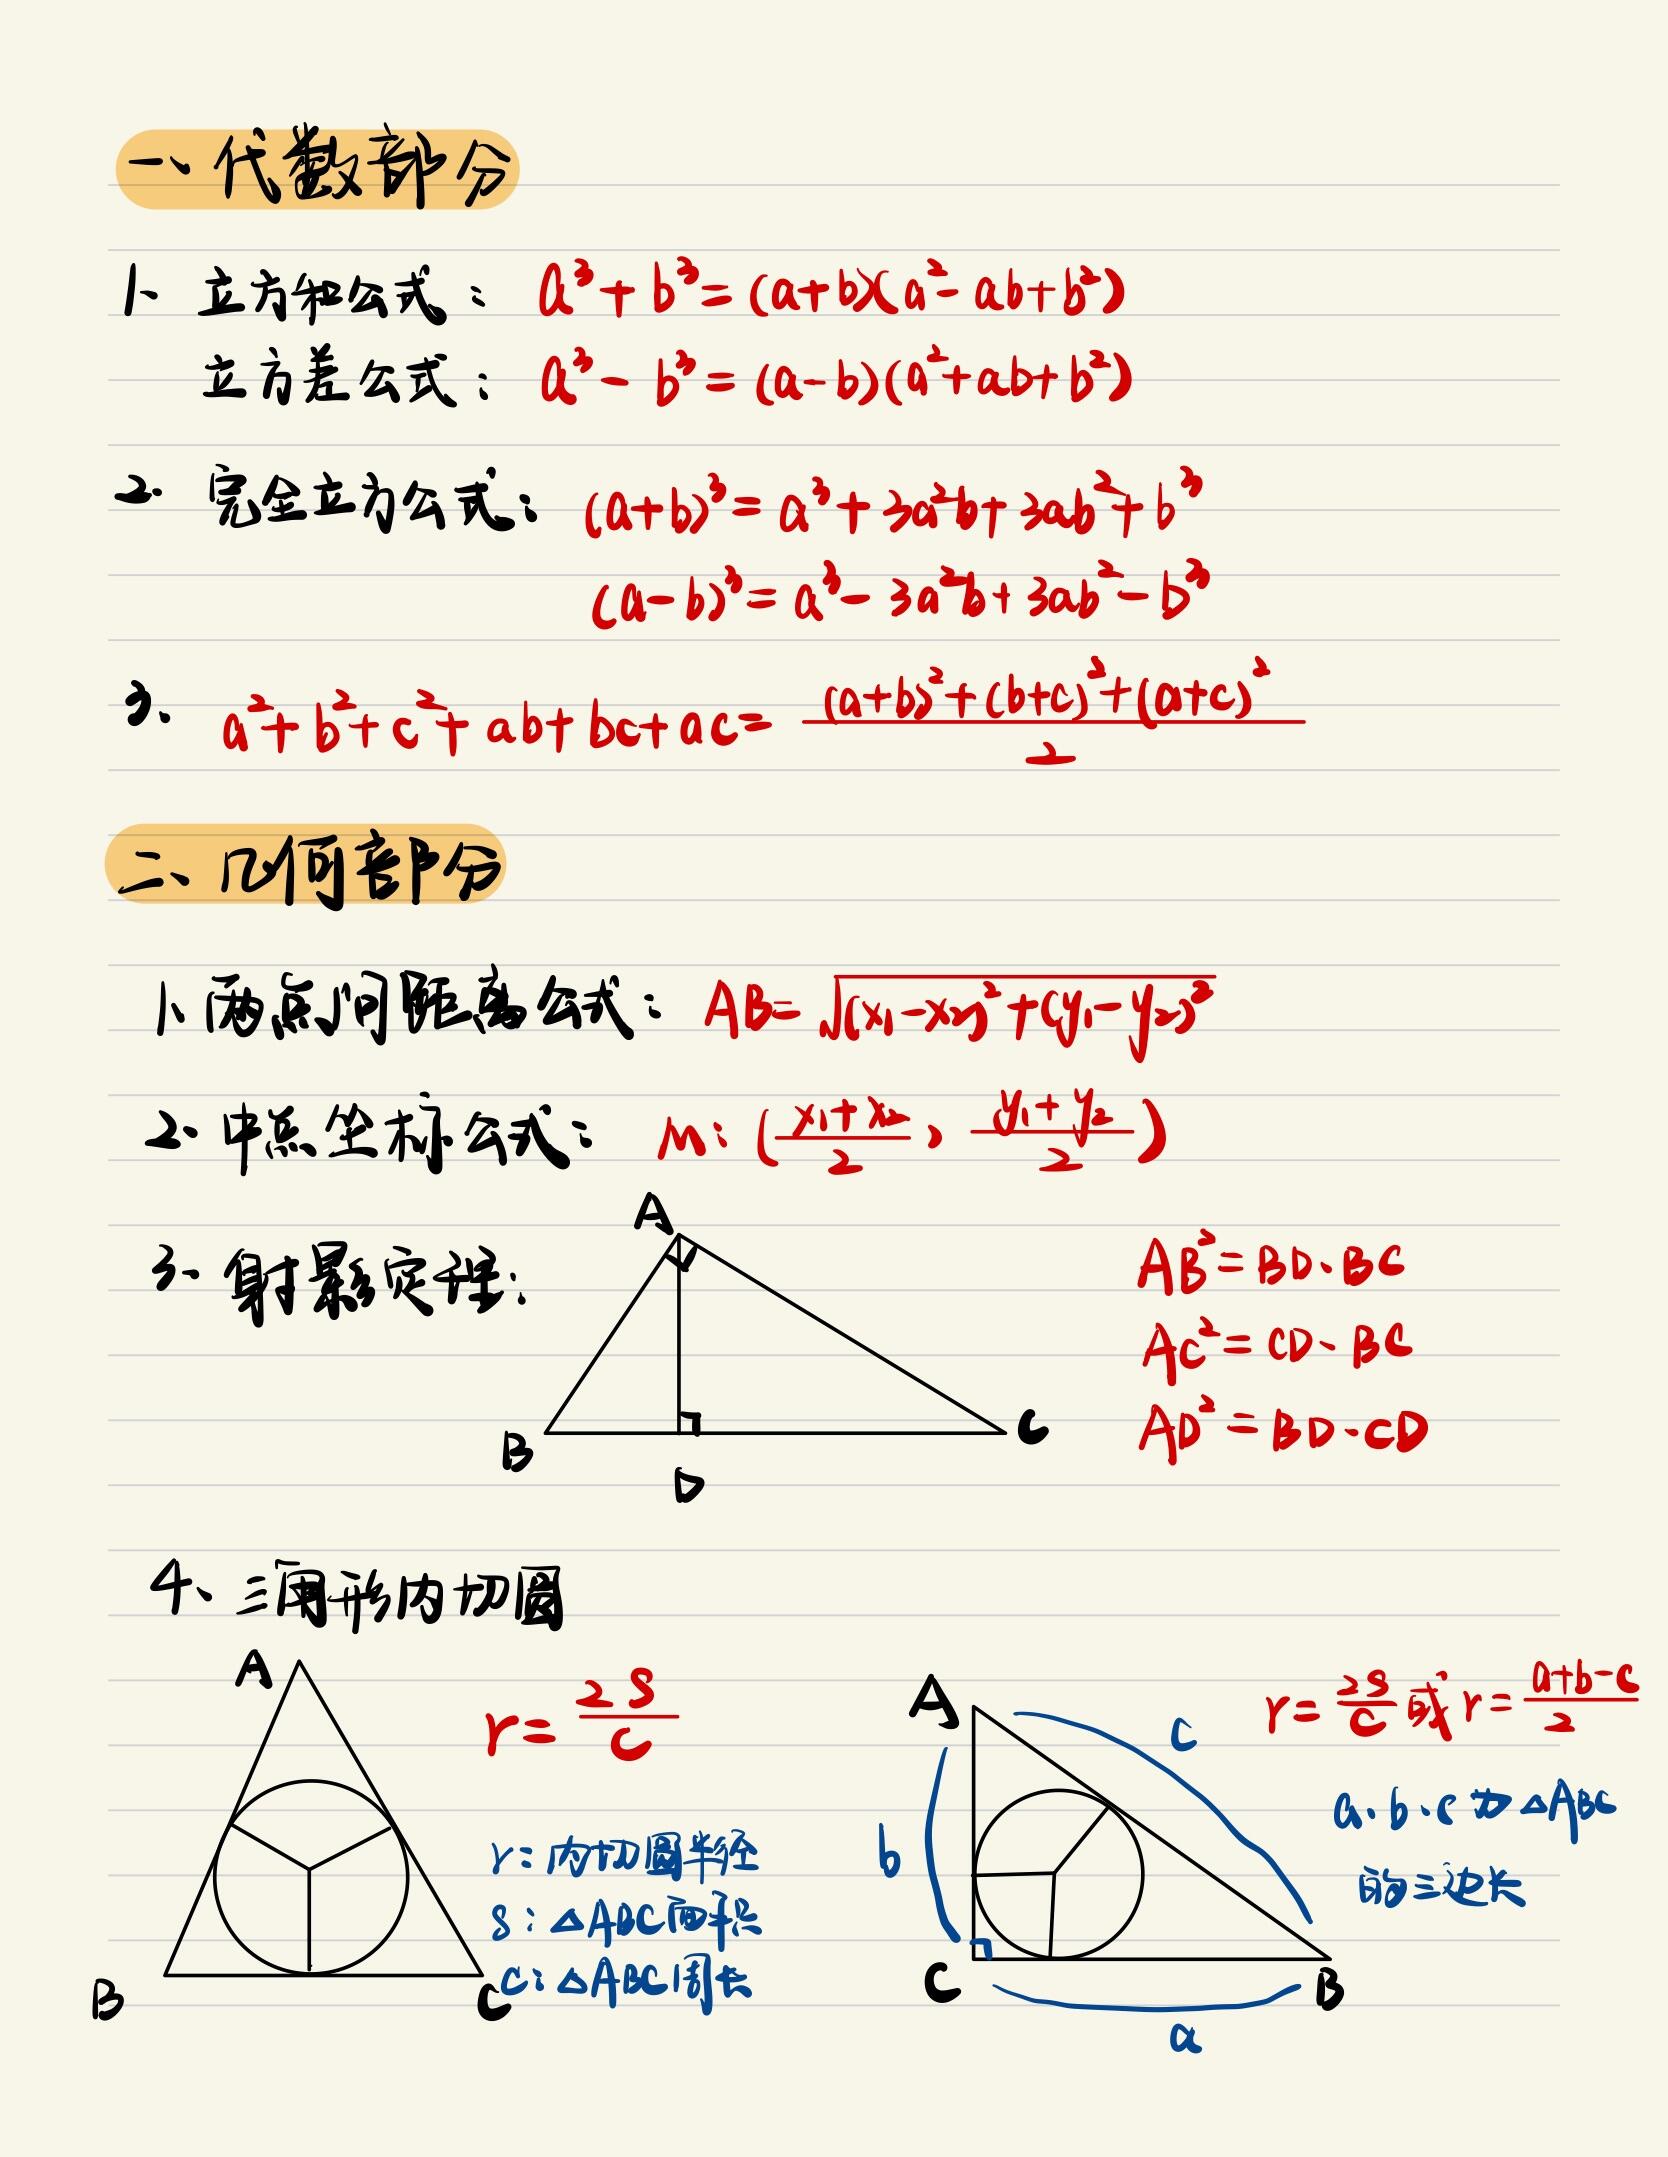 一、代数部分
1、立方和公式：a³+b³=(a+b)(a²-ab+b²)
立方差公式：a³-b³=(a-b)(a²+ab+b²)
2. 完全立方公式：(a+b)³=a³+3a²b+3ab²+b³
(a-b)³=a³-3a²b+3ab²-b³
3、a²+b²+c²+ab+bc+ac=\frac{(a+b)²+(b+c)²+(a+c)²}{2}
二、几何部分
1、两点间距离公式：AB=√((x₁-x₂)²+(y₁-y₂)²)
2、中点坐标公式：M：(\frac{x₁+x₂}{2}，\frac{y₁+y₂}{2})
3、射影定理：
A
B
D
C
AB²=BD·BC
AC²=CD·BC
AD²=BD·CD
4、三角形内切圆
A
B
C
r=\frac{2S}{C}
r：内切圆半径
S：△ABC面积
C：△ABC周长
A
C
B
b
c
a
r=\frac{2S}{C}或r=\frac{a+b-c}{2}
a.b.c为△ABC
的三边长